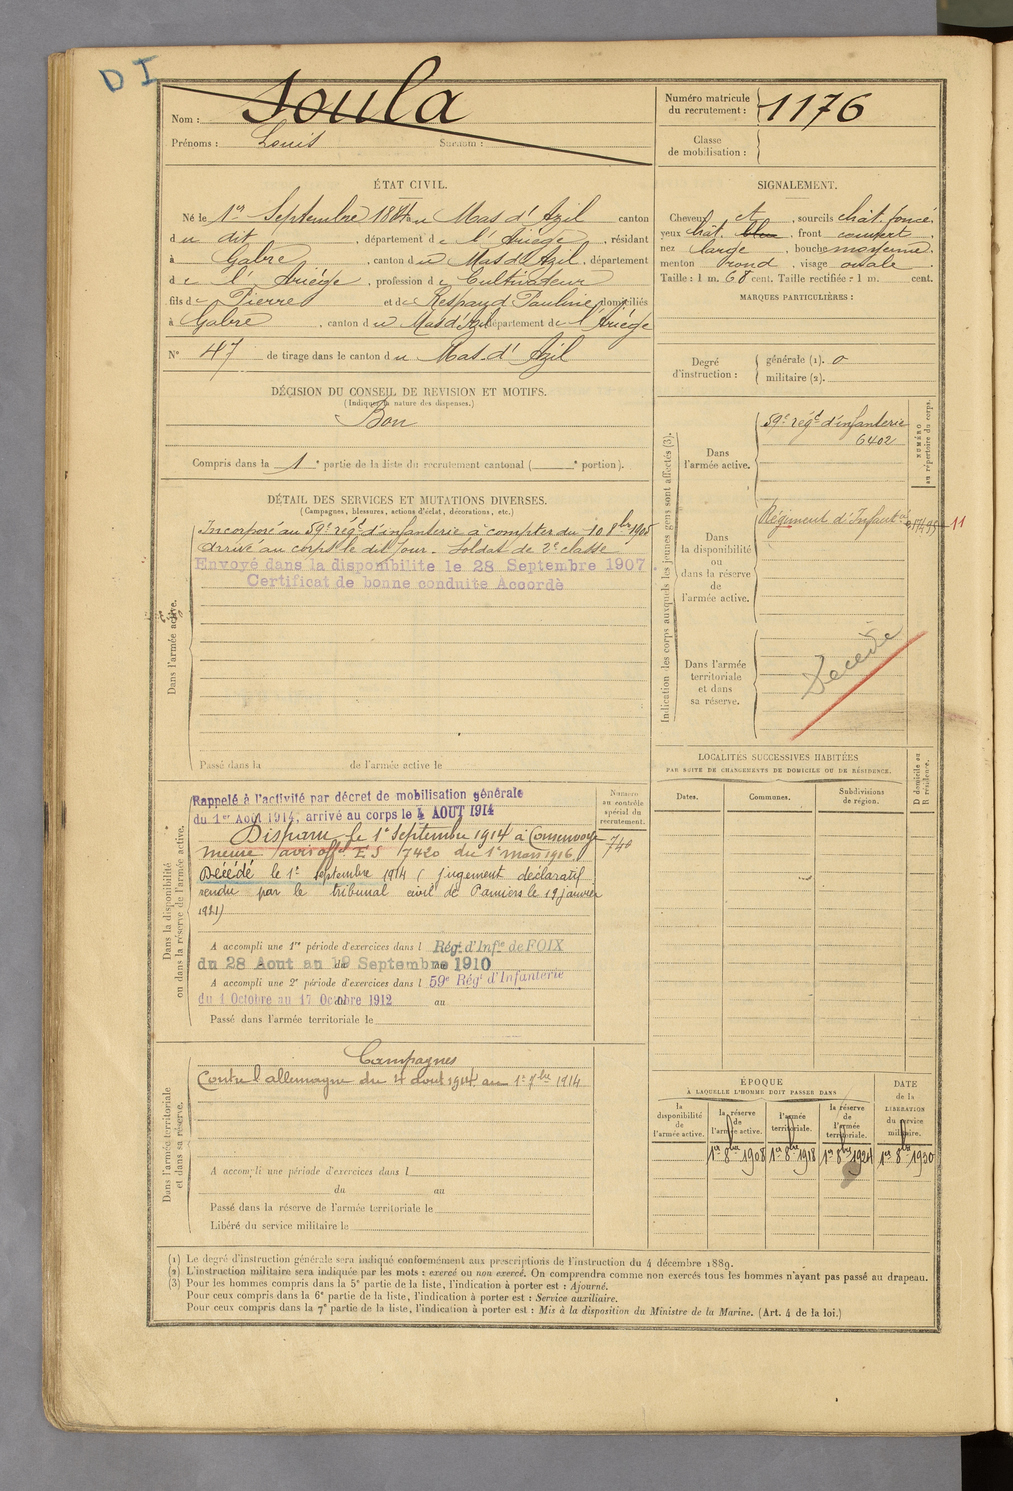 D I
Nom : Soula
Prénoms : Louis Surnom :
Numéro matricule
du recrutement : 1176
Classe
de mobilisation :
ÉTAT CIVIL.
Né le 1er Septembre 1884 au Mas d'Azil canton
du dit, département de l'Ariège, résidant
à Gabre, canton du Mas d'Azil, département
de l'Ariège, profession de Cultivateur
fils de Pierre et de Respaud Pauline, domiciliés
à Gabre, canton du Mas d'Azil département de l'Ariège
N° 47 de tirage dans le canton du Mas-d'Azil
DÉCISION DU CONSEIL DE REVISION ET MOTIFS.
(Indiquer la nature des dispenses.)
Bon
Compris dans la 1e partie de la liste du recrutement cantonal ( e portion).
SIGNALEMENT.
Cheveux et, sourcils chât. foncé.
yeux chât. bleu, front couvert.
nez large, bouche moyenne.
menton rond, visage ovale.
Taille : 1 m. 68 cent. Taille rectifiée : 1 m. cent.
MARQUES PARTICULIÈRES :
Degré
d'instruction :
générale (1). 0
militaire (2).
DÉTAIL DES SERVICES ET MUTATIONS DIVERSES.
(Campagnes, blessures, actions d'éclat, décorations, etc.)
Dans l'armée active.
Incorporé au 59e régt d'infanterie à compter du 10 8bre 1905
arrivé au corps le dit jour. Soldat de 2e classe
Envoyé dans la disponibilite le 28 Septembre 1907.
Certificat de bonne conduite Accordé
Passé dans la de l'armée active le
Indication des corps auxquels les jeunes gens sont affectés (3).
NUMÉRO
au répertoire du corps.
Dans
l'armée active.
59e régt d'infanterie
6402
Dans
la disponibilité
ou
dans la réserve
de
l'armée active.
Régiment d'Infant
11
Dans l'armée
territoriale
et dans
sa réserve.
Décédé
LOCALITÉS SUCCESSIVES HABITÉES
PAR SUITE DE CHANGEMENTS DE DOMICILE OU DE RÉSIDENCE.
D domicile ou
R résidence.
Dates.
Communes.
Subdivisions
de région.
Dans la disponibilité
ou dans la réserve de l'armée active.
Numéro
au contrôle
spécial du
recrutement.
740
Rappelé à l'activité par décret de mobilisation générale
du 1er Août 1914, arrivé au corps le 4 AOUT 1914
Disparu le 1er Septembre 1914 à Consenvoye
Meuse (avis offel ES 7420 du 1er mars 1916)
Décédé le 1er septembre 1914 (jugement déclaratif
rendu par le tribunal civil de Pamiers le 19 janvier
1921)
A accompli une 1re période d'exercices dans l Rég. d'Infie de FOIX
du 28 Aout au 19 Septembre 1910
A accompli une 2e période d'exercices dans l 59e Régt d'Infanterie
du 1 Octobre au 17 Octobre 1912 au
Passé dans l'armée territoriale le
Dans l'armée territoriale
et dans sa réserve.
Campagnes
Contre l'allemagne du 4 aout 1914 au 1er 7bre 1914
A accompli une période d'exercices dans l
du au
Passé dans la réserve de l'armée territoriale le
Libéré du service militaire le
ÉPOQUE
À LAQUELLE L'HOMME DOIT PASSER DANS
DATE
de la
LIBÉRATION
du service
militaire.
la
disponibilité
de
l'armée active.
la réserve
de
l'armée active.
l'armée
territoriale.
la réserve
de
l'armée
territoriale.
1er 8bre 1908 1er 8bre 1918 1er 8bre 1924 1er 8bre 1930
(1) Le degré d'instruction générale sera indiqué conformément aux prescriptions de l'instruction du 4 décembre 1889.
(2) L'instruction militaire sera indiquée par les mots : exercé ou non exercé. On comprendra comme non exercés tous les hommes n'ayant pas passé au drapeau.
(3) Pour les hommes compris dans la 5e partie de la liste, l'indication à porter est : Ajourné.
Pour ceux compris dans la 6e partie de la liste, l'indication à porter est : Service auxiliaire.
Pour ceux compris dans la 7e partie de la liste, l'indication à porter est : Mis à la disposition du Ministre de la Marine. (Art. 4 de la loi.)